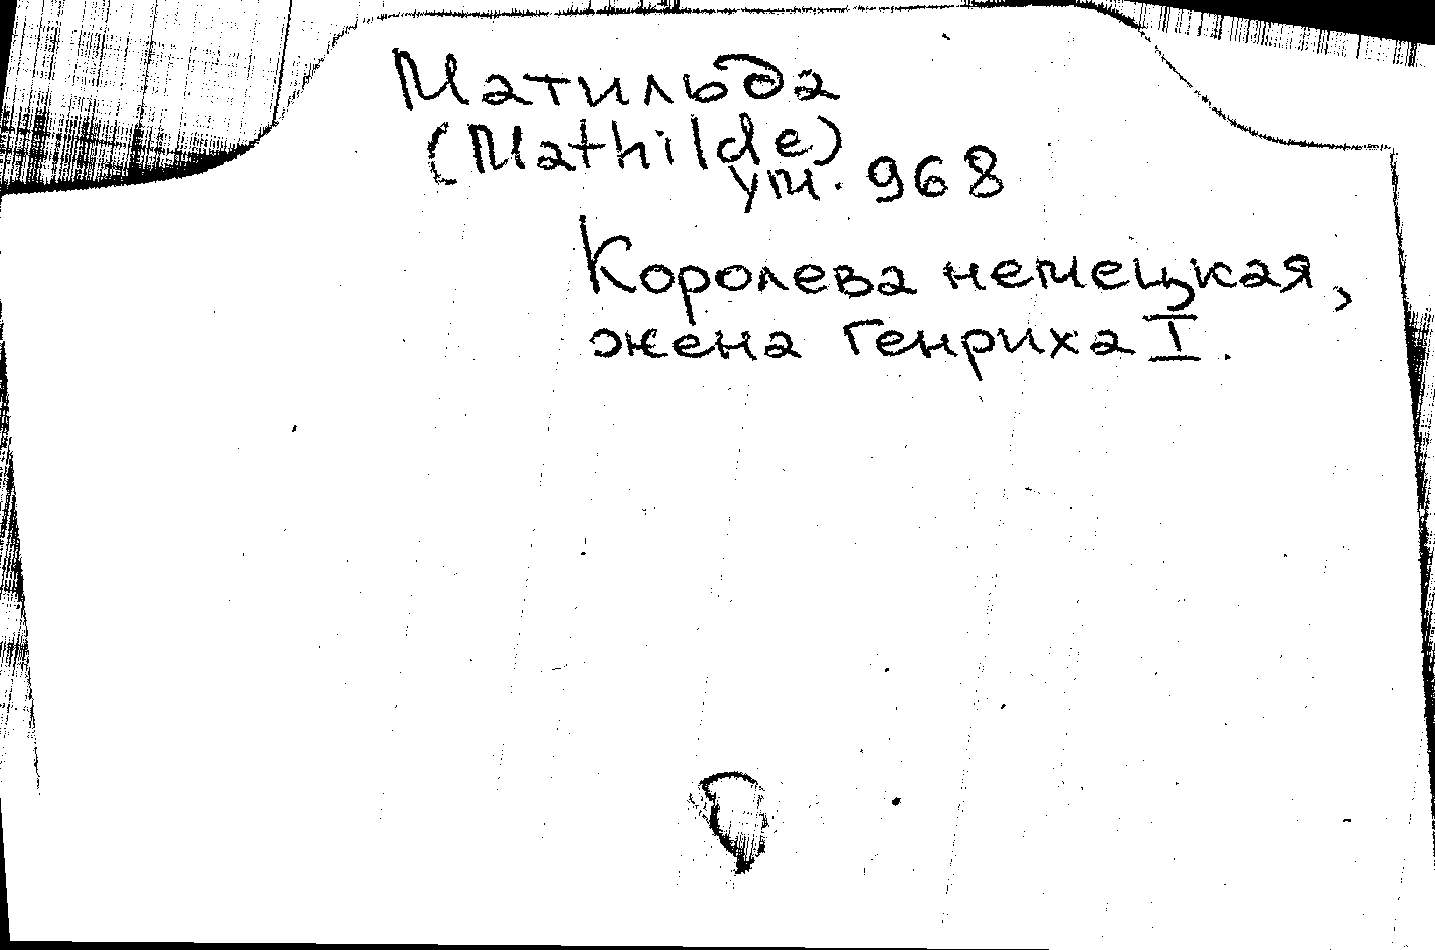 Матильда
(Mathilde)
ум. 968
Королева немецкая,
жена Генриха I.